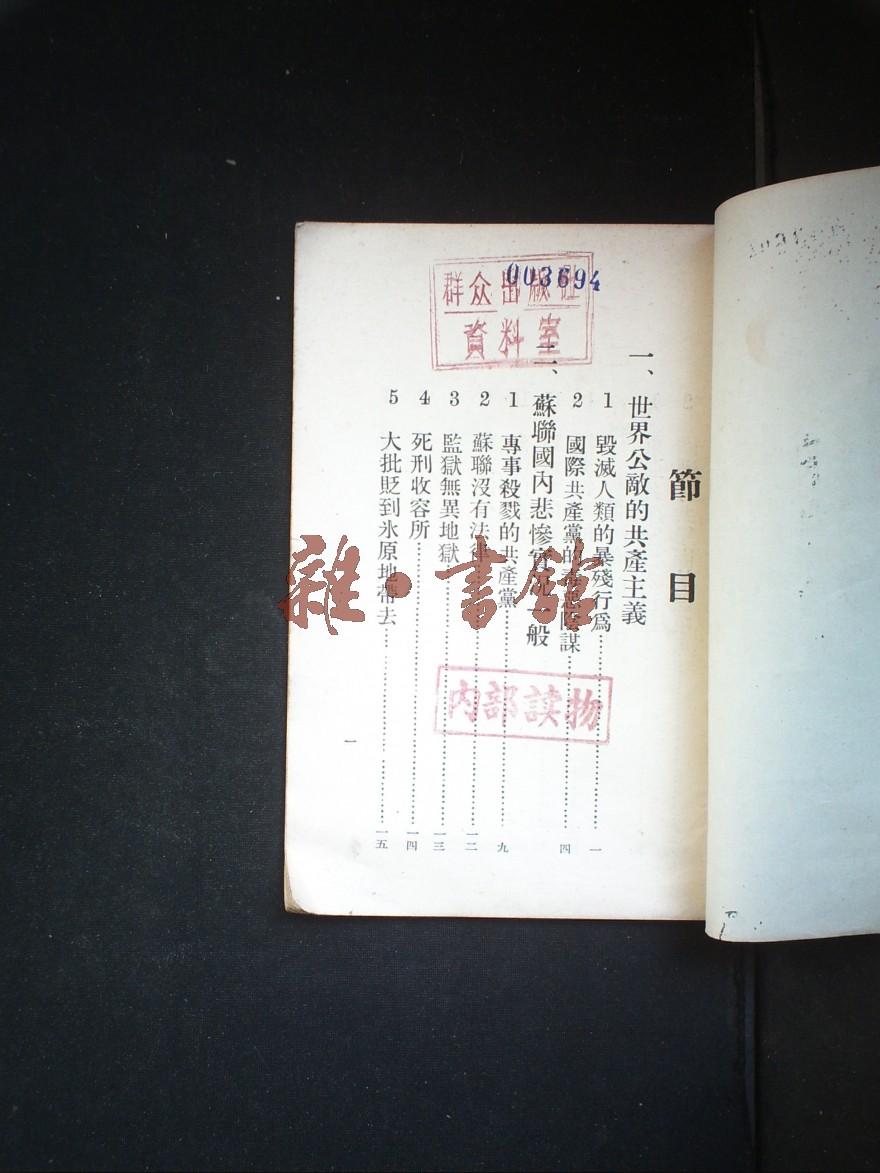 003694
群众出版社
資料室
節目
一、世界公敵的共產主義
1 毀滅人類的暴殘行爲……一
2 國際共產黨的毒惡陰謀……四
二、蘇聯國內悲慘實况一般
1 專事殺戮的共產黨……九
2 蘇聯沒有法律……一二
3 監獄無異地獄……一三
4 死刑收容所……一四
5 大批貶到氷原地帶去……一五
一
内部读物
雜·書館